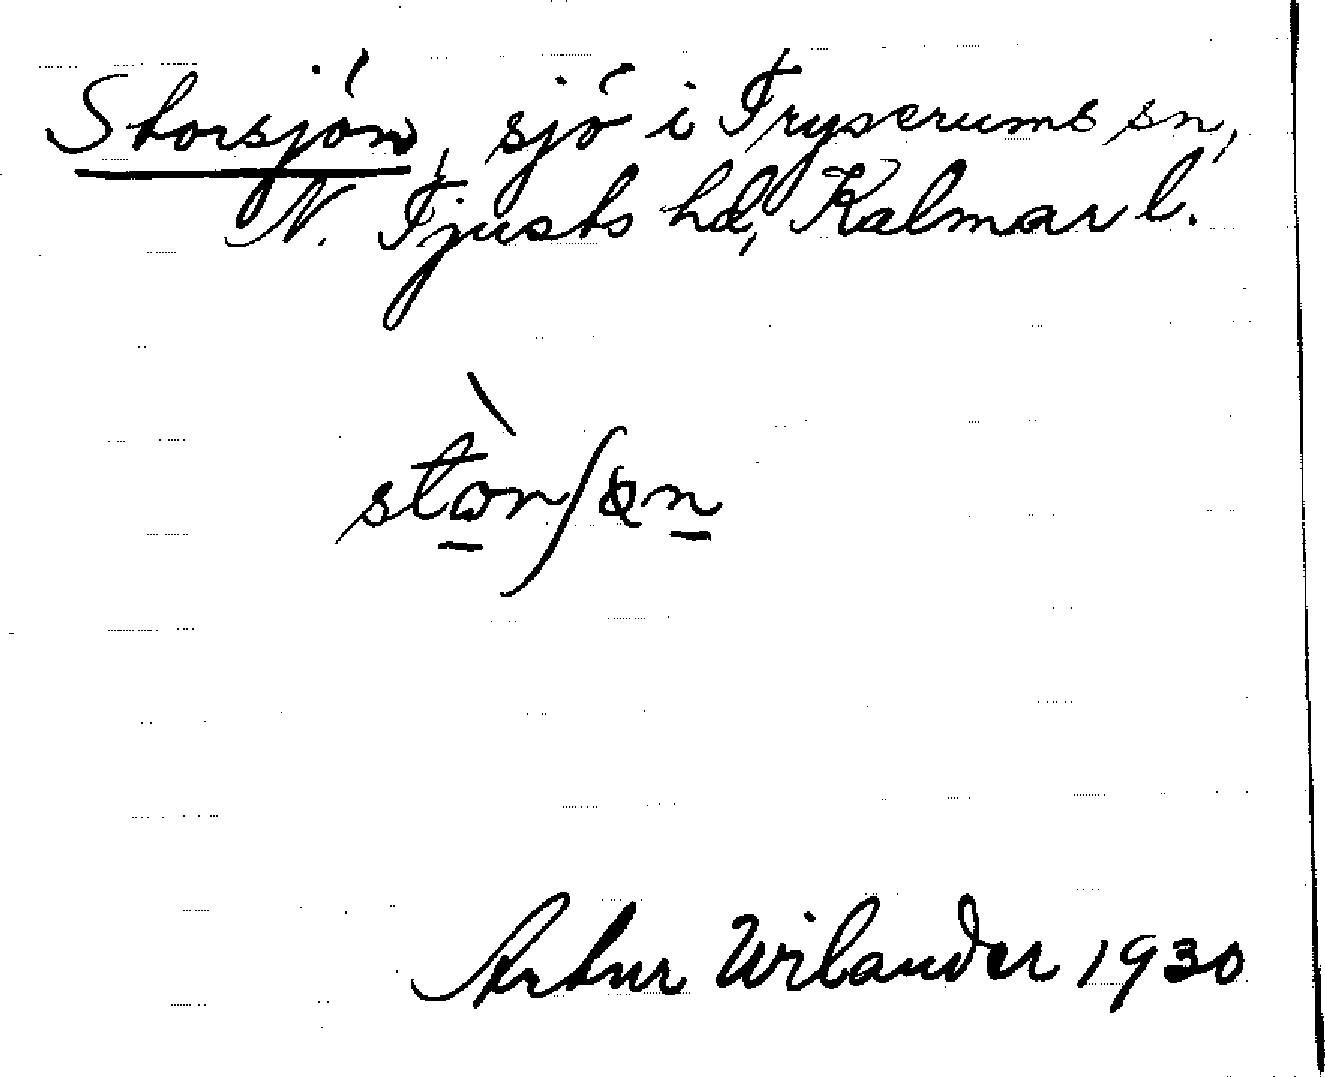 Storsjön, sjö i Tryserums sn,
N. Tjusts hd, Kalmar l.
Artur Wilander 1930